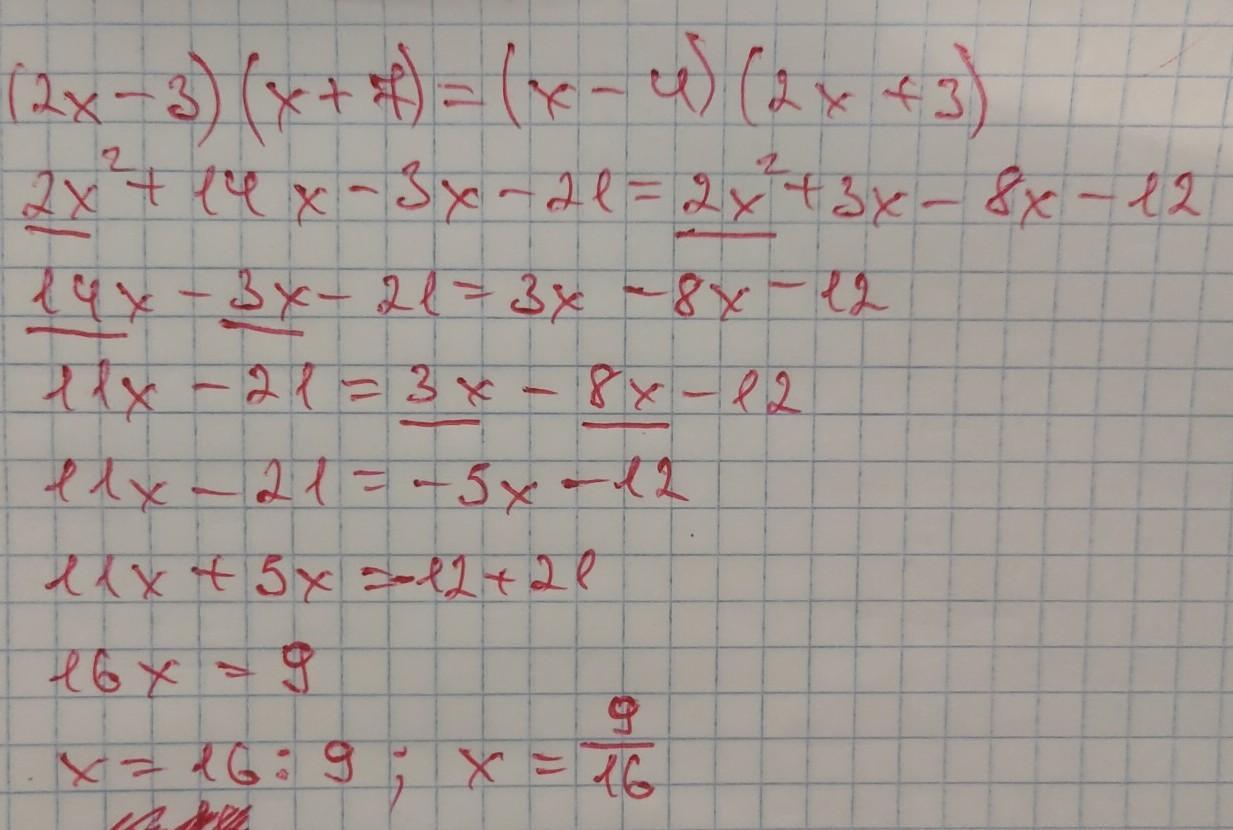 (2x - 3)(x + 7) = (x - 4)(2x + 3)
2x² + 14x - 3x - 21 = 2x² + 3x - 8x - 12
14x - 3x - 21 = 3x - 8x - 12
11x - 21 = 3x - 8x - 12
11x - 21 = -5x - 12
11x + 5x = -12 + 21
16x = 9
x = 16 : 9 ; x = 9/16